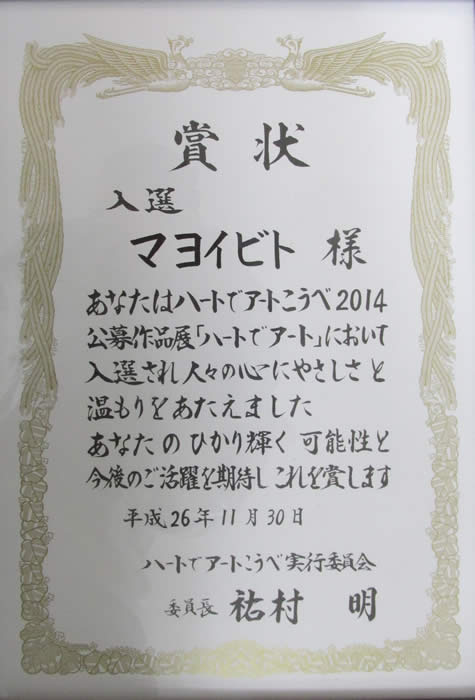 賞状
入選
マヨイビト 様
あなたはハートでアートこうべ2014
公募作品展「ハートでアート」において
入選され人々の心にやさしさと
温もりをあたえました
あなたのひかり輝く可能性と
今後のご活躍を期待しこれを賞します
平成26年11月30日
ハートでアートこうべ実行委員会
委員長 祐村 明